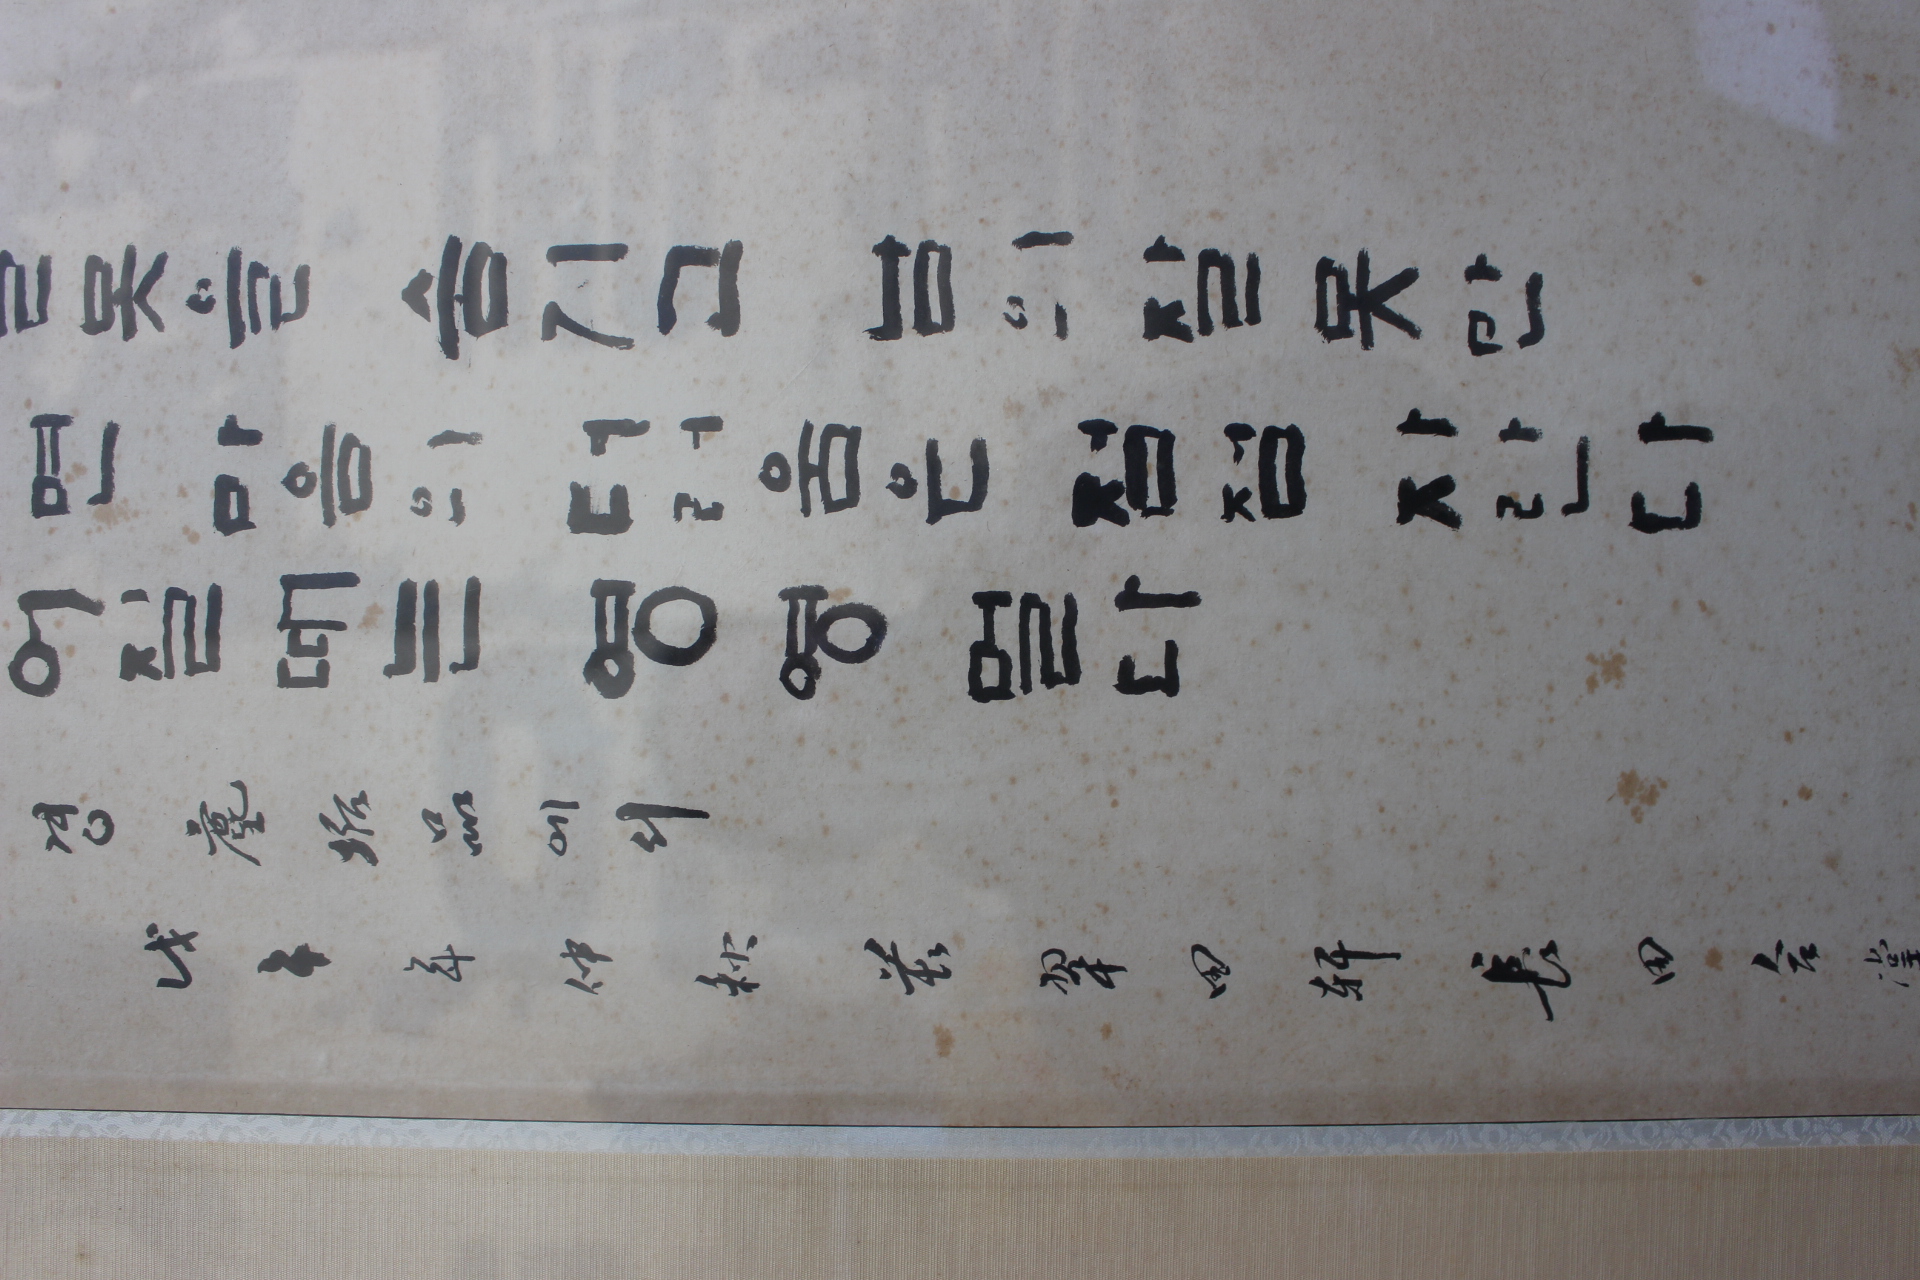 잘못을 숨기고 남의 잘못만
면 마음의 더러움은 점점 자란다
어질 때는 영영 멀다
경 塵垢品에서
戊午年仲秋 翠田軒 長田 合堂